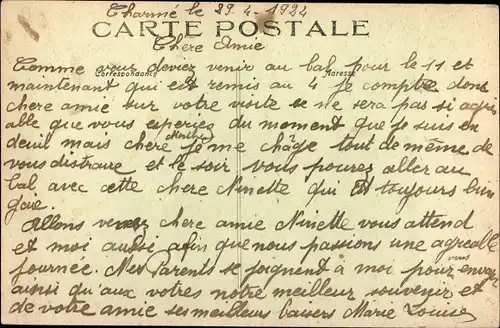 Charmé le 29-4-1924
CARTE POSTALE
Chere Amie
Correspondance Adresse
Comme vous deviez venir au bal pour le 11 et
maintenant qui est remis au 4 je compte donc
chere amie sur votre visite se ne sera pas si agré
able que vous esperiez du moment que je suis en
deuil mais chere je me châge tout de même de
vous distraire et le soir vous pourez aller au
bal avec cette chere Ninette qui est toujours bien
gaie.
Allons venez chere amie Ninette vous attend
et moi aussi afin que nous passions une agreable
journée. Mes Parents se joignent à moi pour vous envoyer
ainsi qu'aux votres notre meilleur souvenir et
de votre amie ses meilleurs baisers Marie Louise